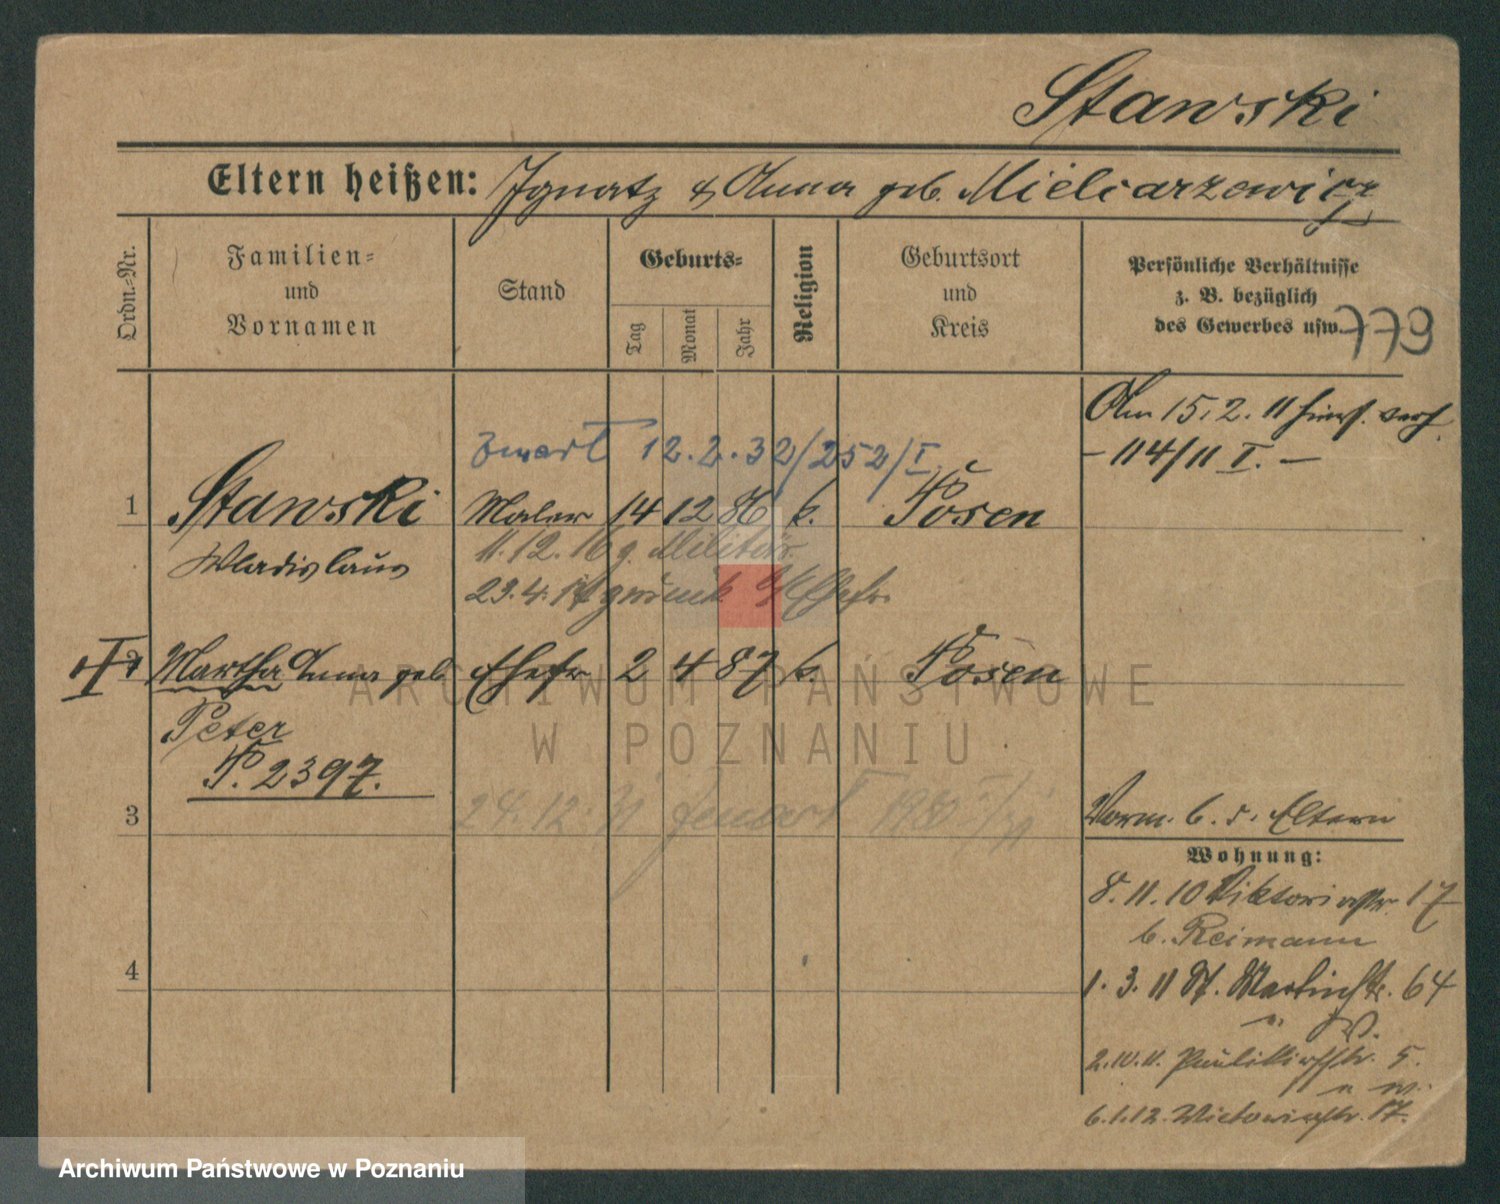 Stawski
Eltern heißen: Ignatz & Anna geb. Mielcarzewicz
Ordn.-Nr.
Familien-
und
Vornamen
Stand
Geburts-
Tag
Monat
Jahr
Religion
Geburtsort
und
Kreis
Persönliche Verhältnisse
z. B. bezüglich
des Gewerbes usw.
779
Am 15.2.11 hiers. verh.
- 114/11 I. -
12.2.32/252/I
1 Stawski Maler 14 12 86 k. Posen
Wladislaus
11.12.16 z. Militär.
23.4.17 zurück Ehefr.
2 Martha Anna geb. Ehefr 2 4 87 k. Posen
Peter
P. 2397.
24.12.31
3
Vorm. b. d. Eltern
Wohnung:
8.11.10 Viktoriastr. 17
b. Reimann
4
1.3.11 St. Martinstr. 64
" W.
2.10.11. Paulikirchstr. 5.
" W.
6.1.12. Victoriastr. 17.
ARCHIWUM PAŃSTWOWE
W POZNANIU
Archiwum Państwowe w Poznaniu